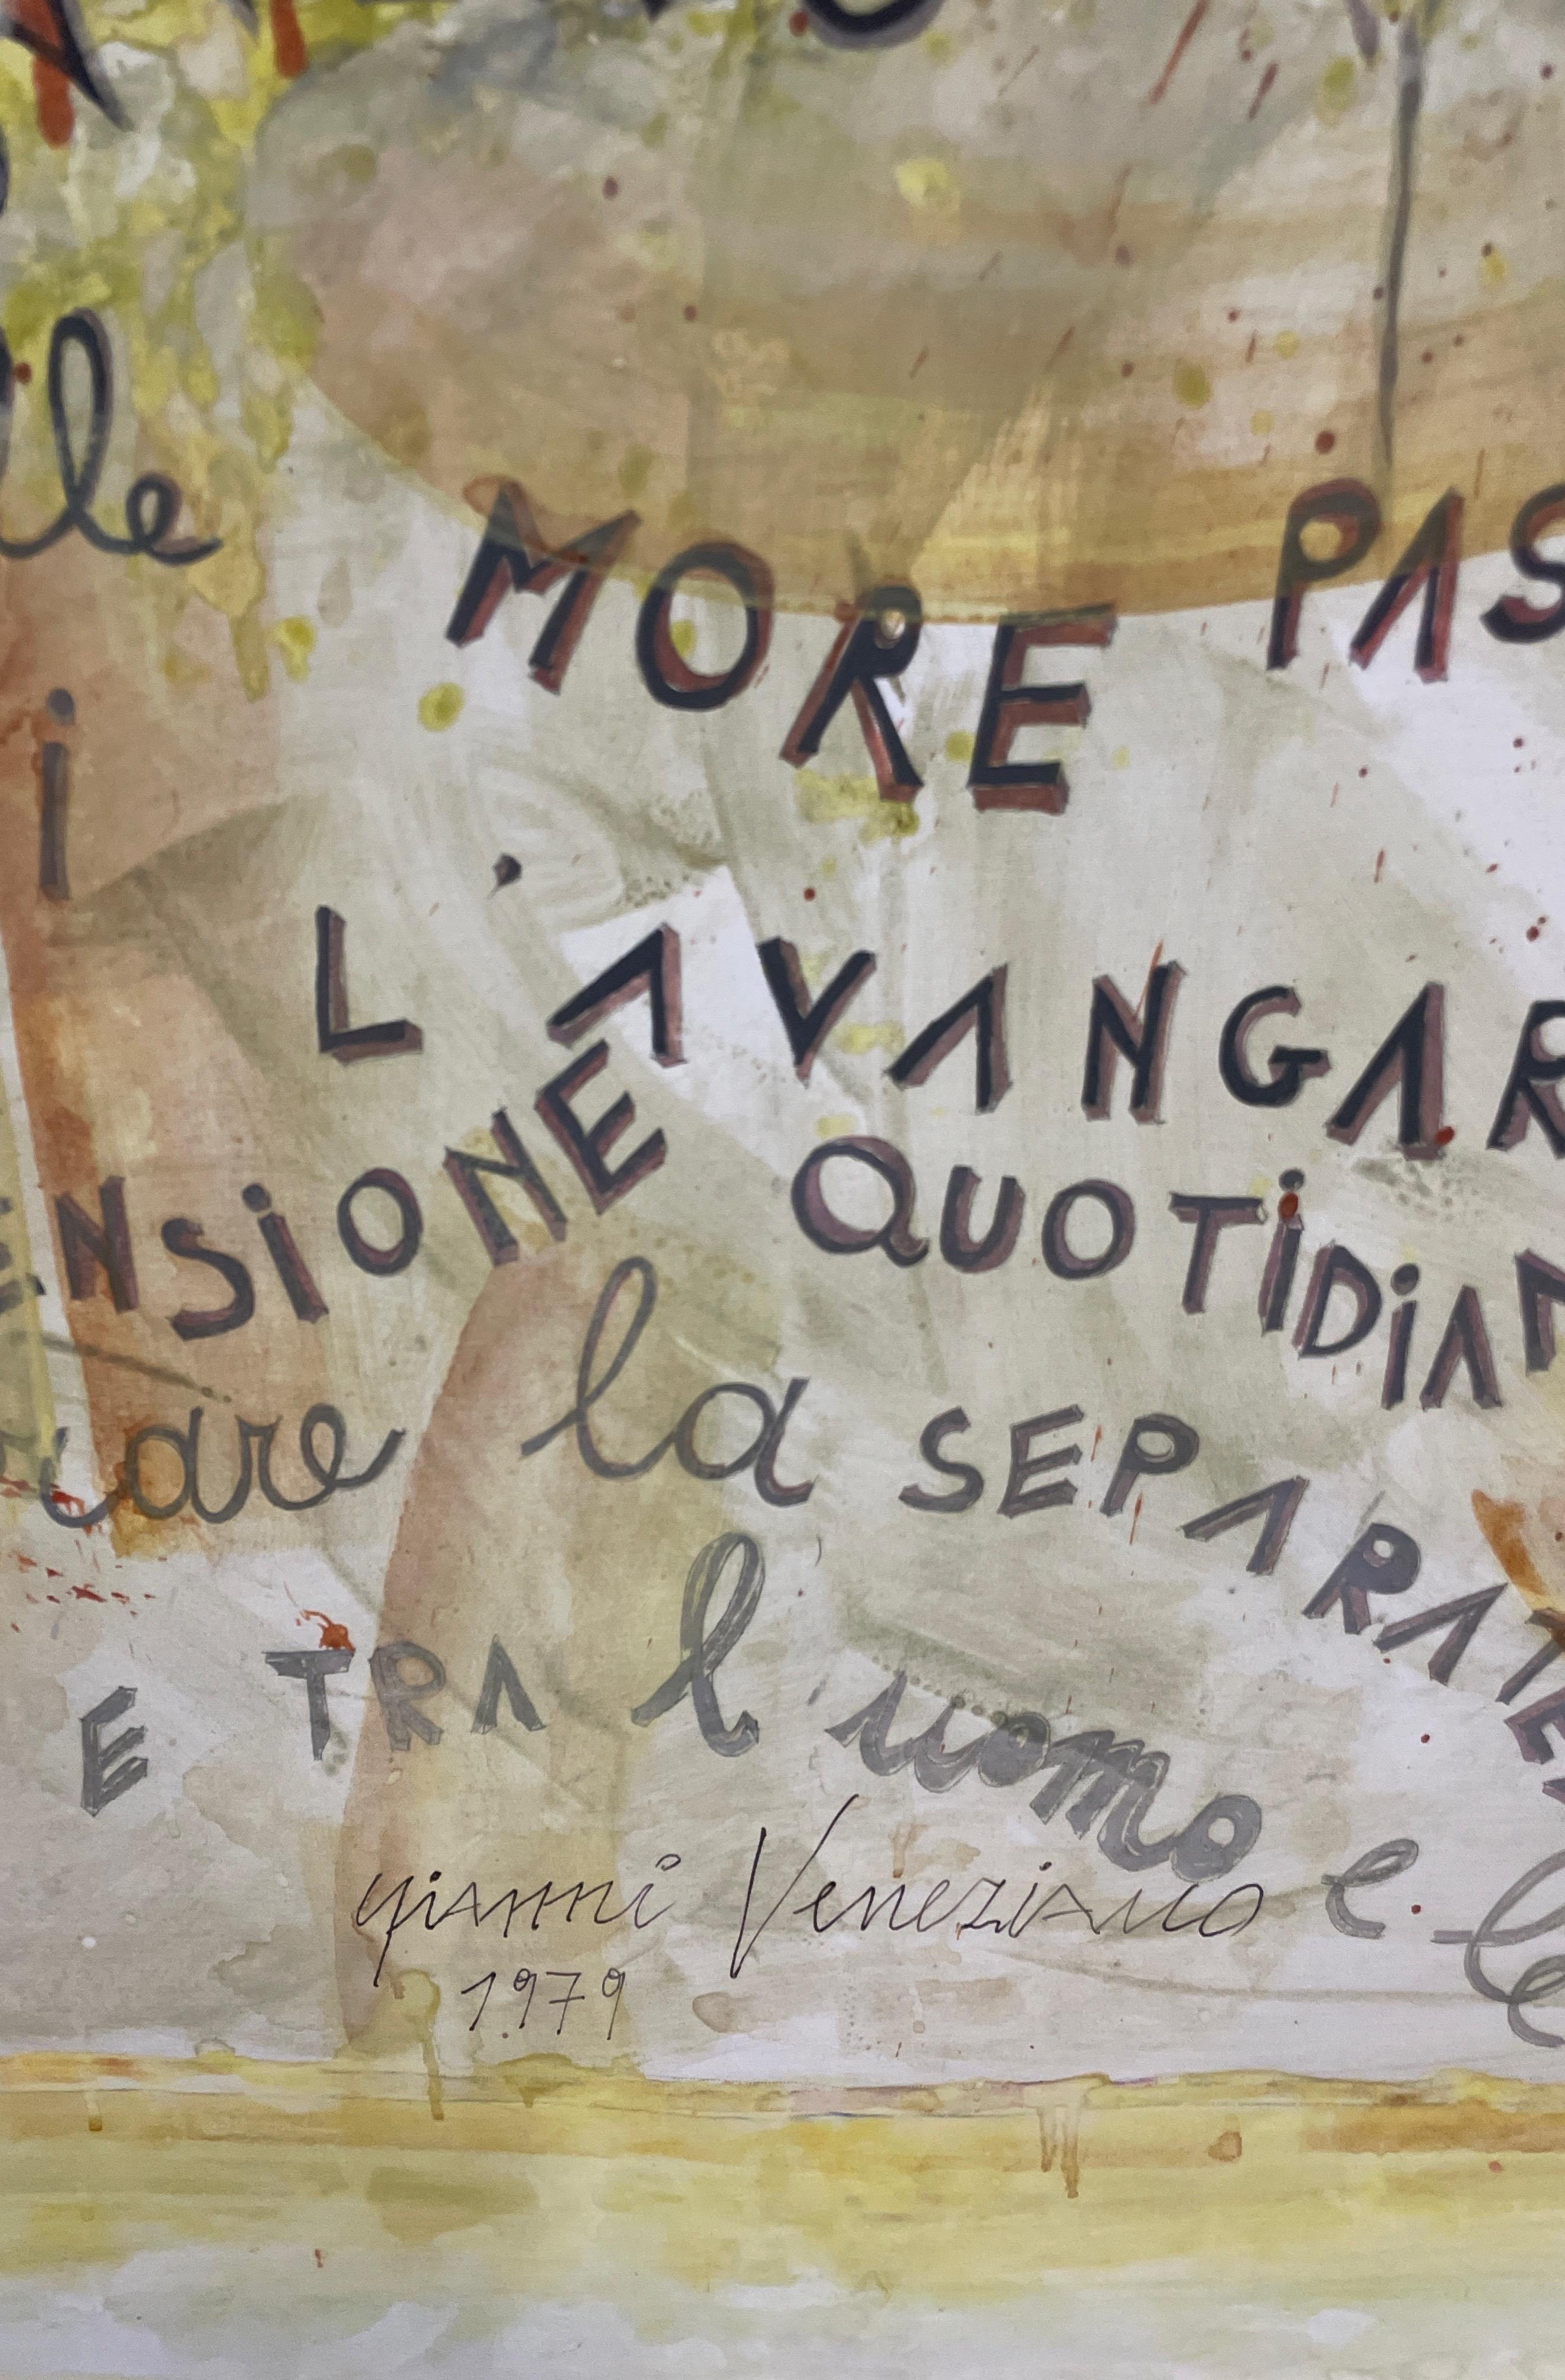 lle MORE PAS
i
L'AVANGAR
ENSIONE QUOTIDIAN
are la SEPARATE
E TRA l'uomo e le
gianni Veneziano
1979